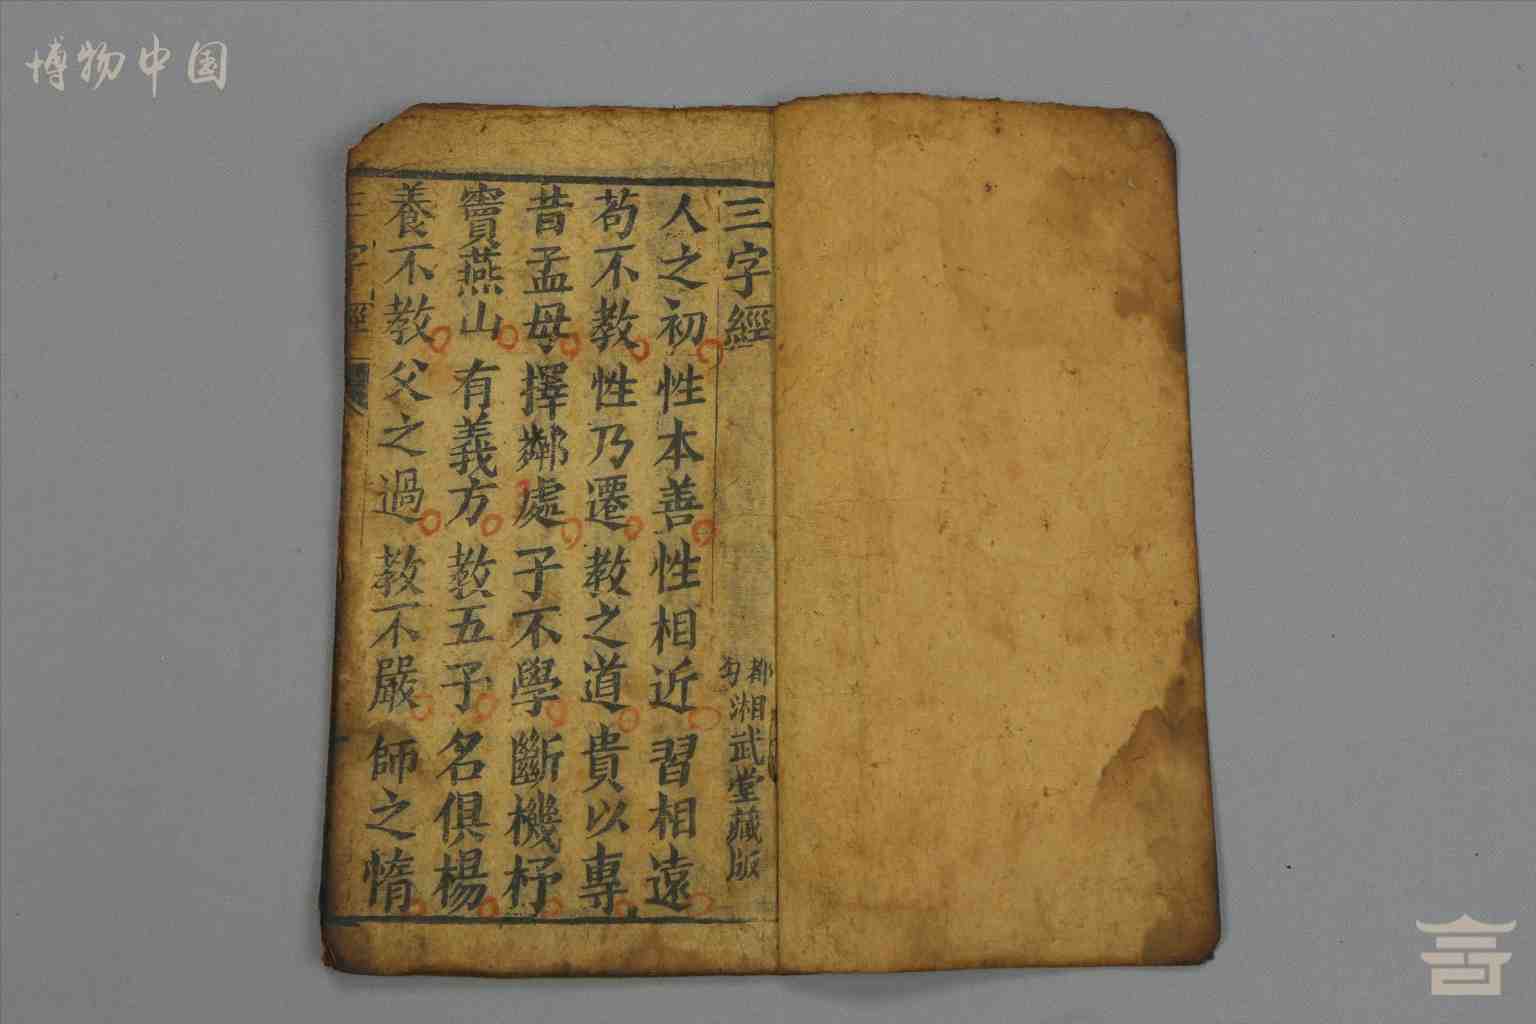 博物中国
三字經
都湘武堂藏版
人之初性本善性相近習相遠
苟不教性乃遷教之道貴以專
昔孟母擇鄰處子不學斷機杼
竇燕山有義方教五子名俱楊
養不教父之過教不嚴師之惰
三字經